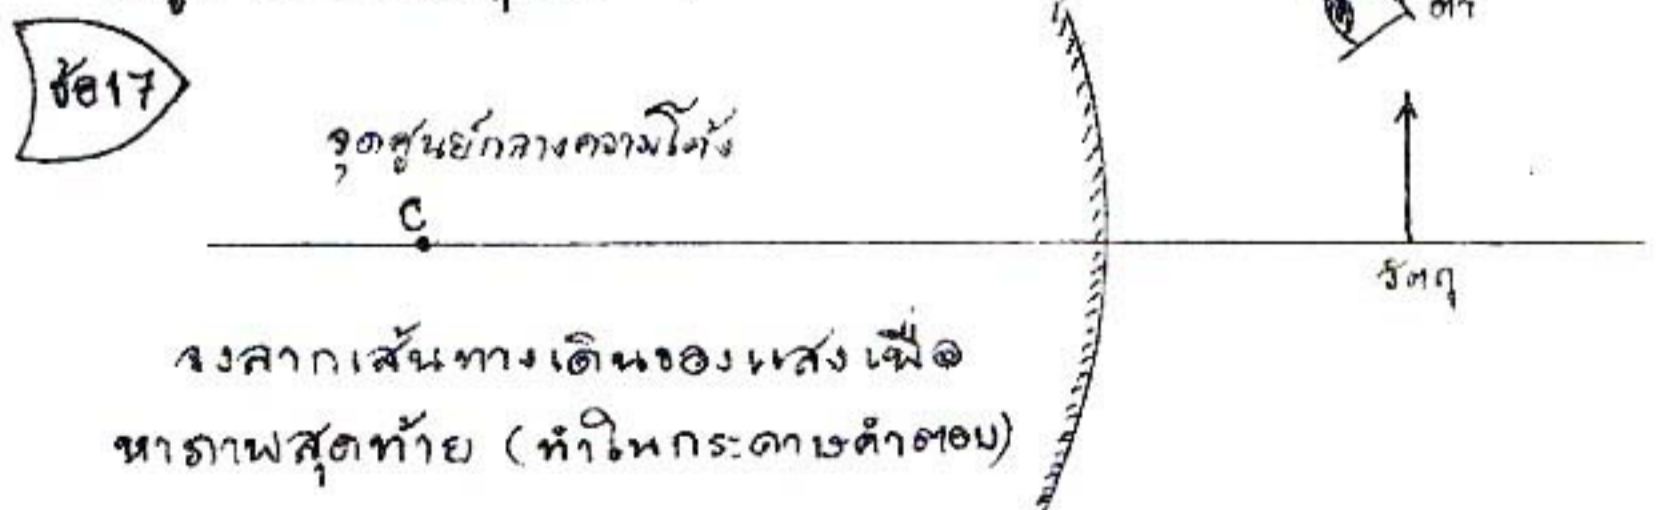 ข้อ 17
ตา
จุดศูนย์กลางความโค้ง
C
วัตถุ
จงลากเส้นทางเดินของแสงเพื่อ
หาภาพสุดท้าย (ทำในกระดาษคำตอบ)